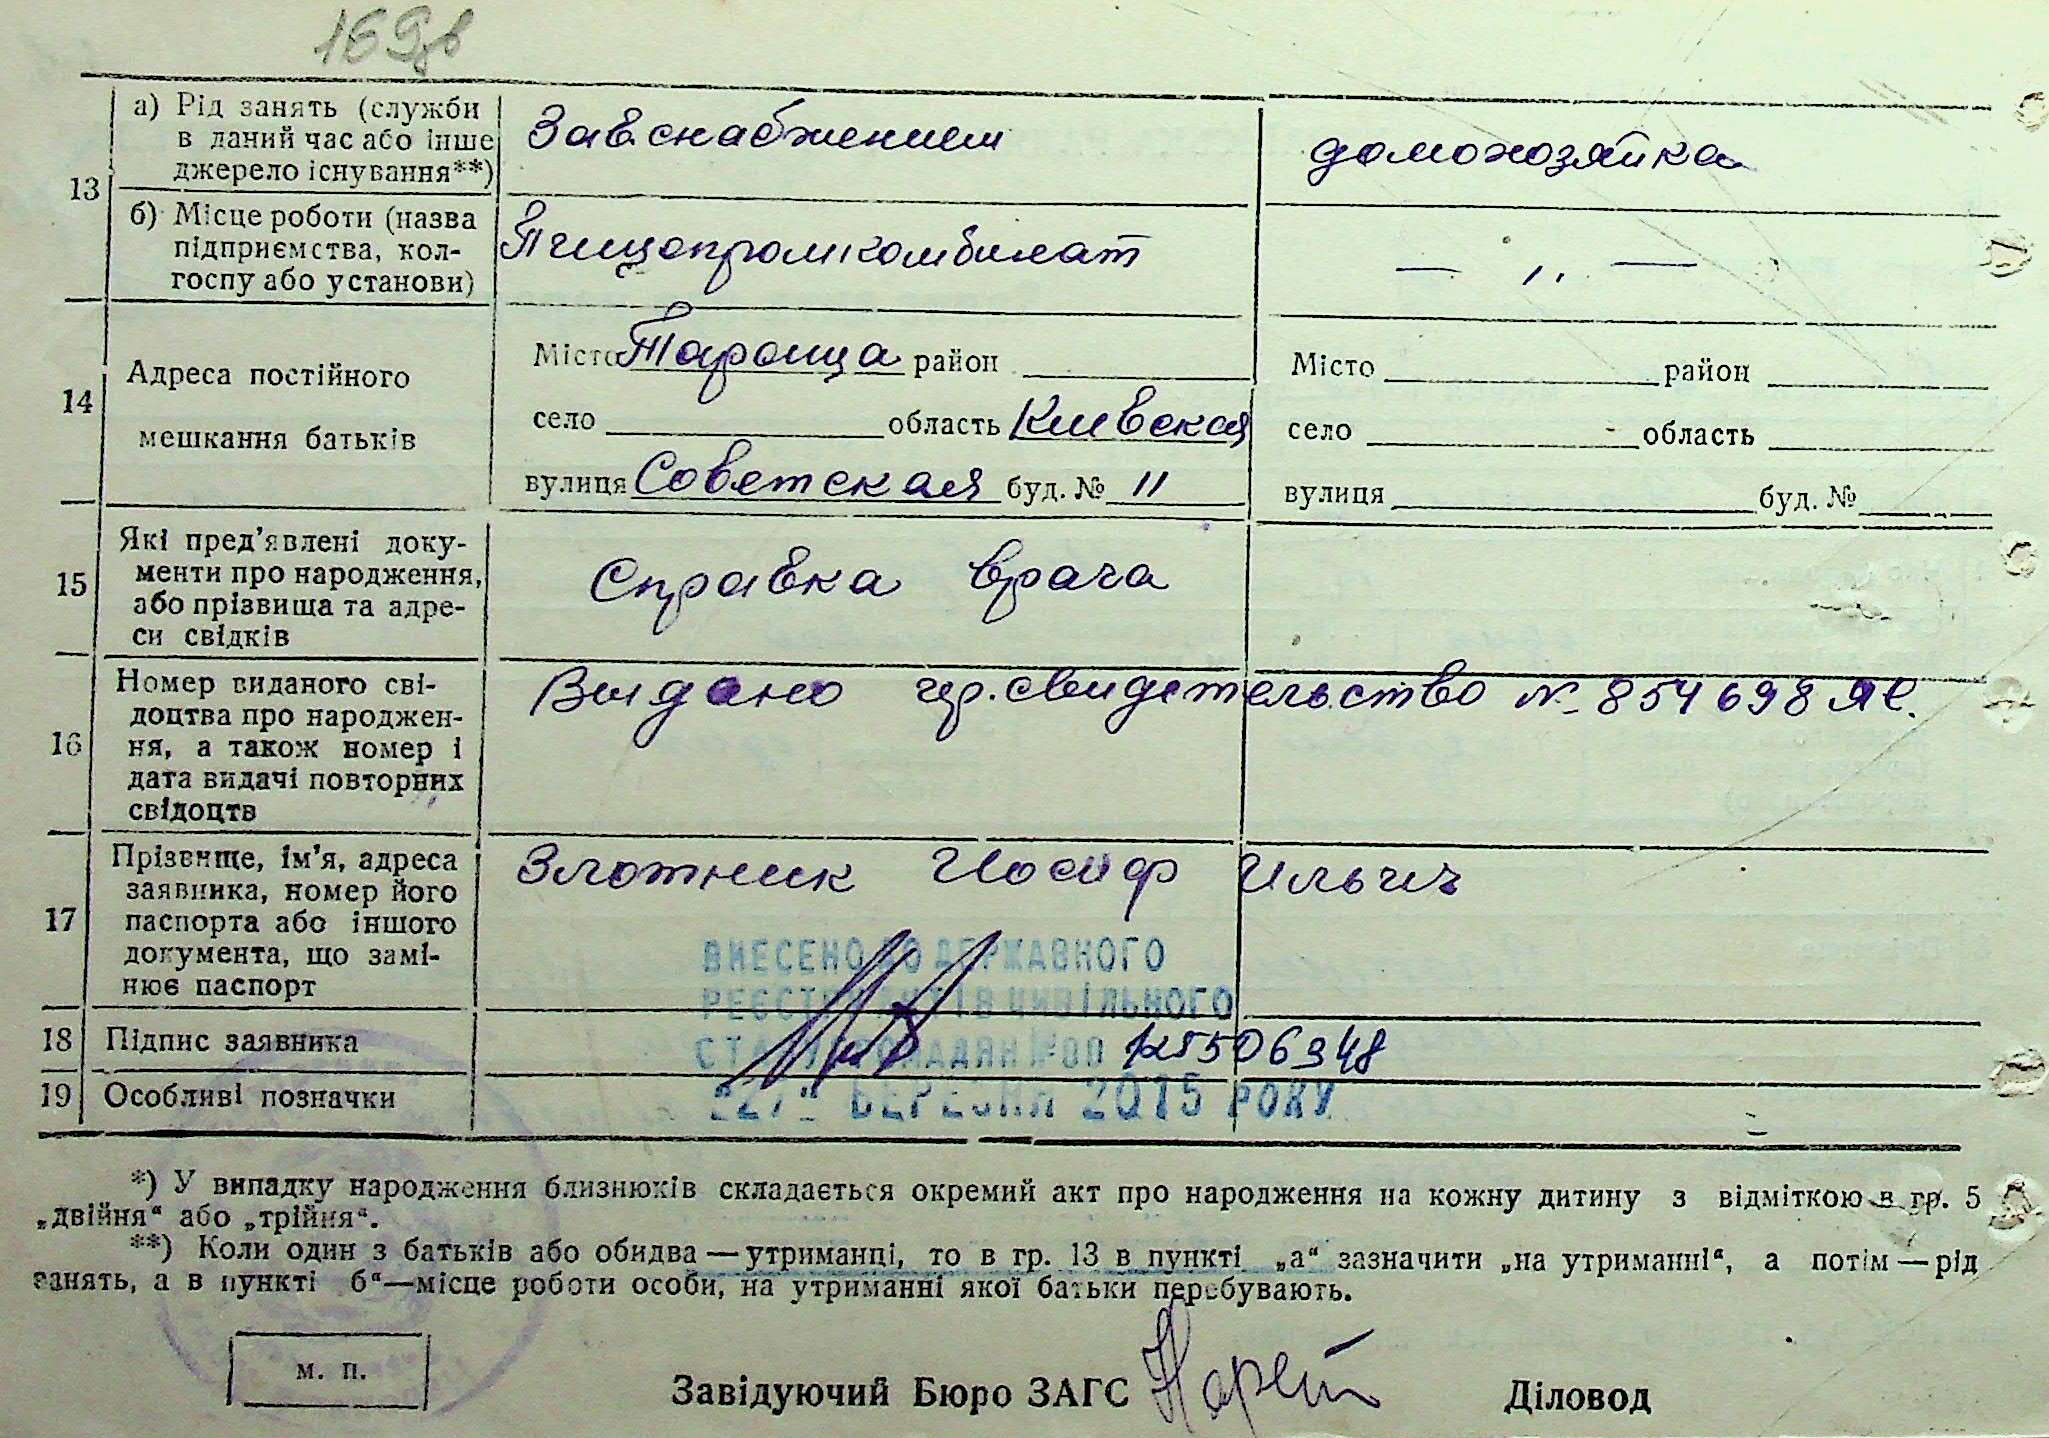 169зв
13
а) Рід занять (служби
в даний час або інше
джерело існування**)
Завснабжением
домохозяйка
б) Місце роботи (назва
підприємства, кол-
госпу або установи)
Пищепромкомбинат
— „ —
14
Адреса постійного
мешкання батьків
Місто Тараща район
село область Киевская
вулиця Советская буд. № 11
Місто район
село область
вулиця буд. №
15
Які пред’явлені доку-
менти про народження,
або прізвища та адре-
си свідків
Справка врача
16
Номер виданого сві-
доцтва про народжен-
ня, а також номер і
дата видачі повторних
свідоцтв
Выдано гр. свидетельство № 854698 ЯС.
17
Прізвище, ім’я, адреса
заявника, номер його
паспорта або іншого
документа, що замі-
нює паспорт
Злотник Иосиф Ильич
ВНЕСЕНО ДО ДЕРЖАВНОГО
РЕЄСТРУ АКТІВ ЦИВІЛЬНОГО
СТАНУ ГРОМАДЯН №00
БЕРЕЗНЯ 2015 РОКУ
18
Підпис заявника
19
Особливі позначки
*) У випадку народження близнюків складається окремий акт про народження на кожну дитину з відміткою в гр. 5
„двійня“ або „трійня“.
**) Коли один з батьків або обидва — утриманці, то в гр. 13 в пункті „а“ зазначити „на утриманні“, а потім — рід
занять, а в пункті б“—місце роботи особи, на утриманні якої батьки перебувають.
м. п.
Завідуючий Бюро ЗАГС
Діловод